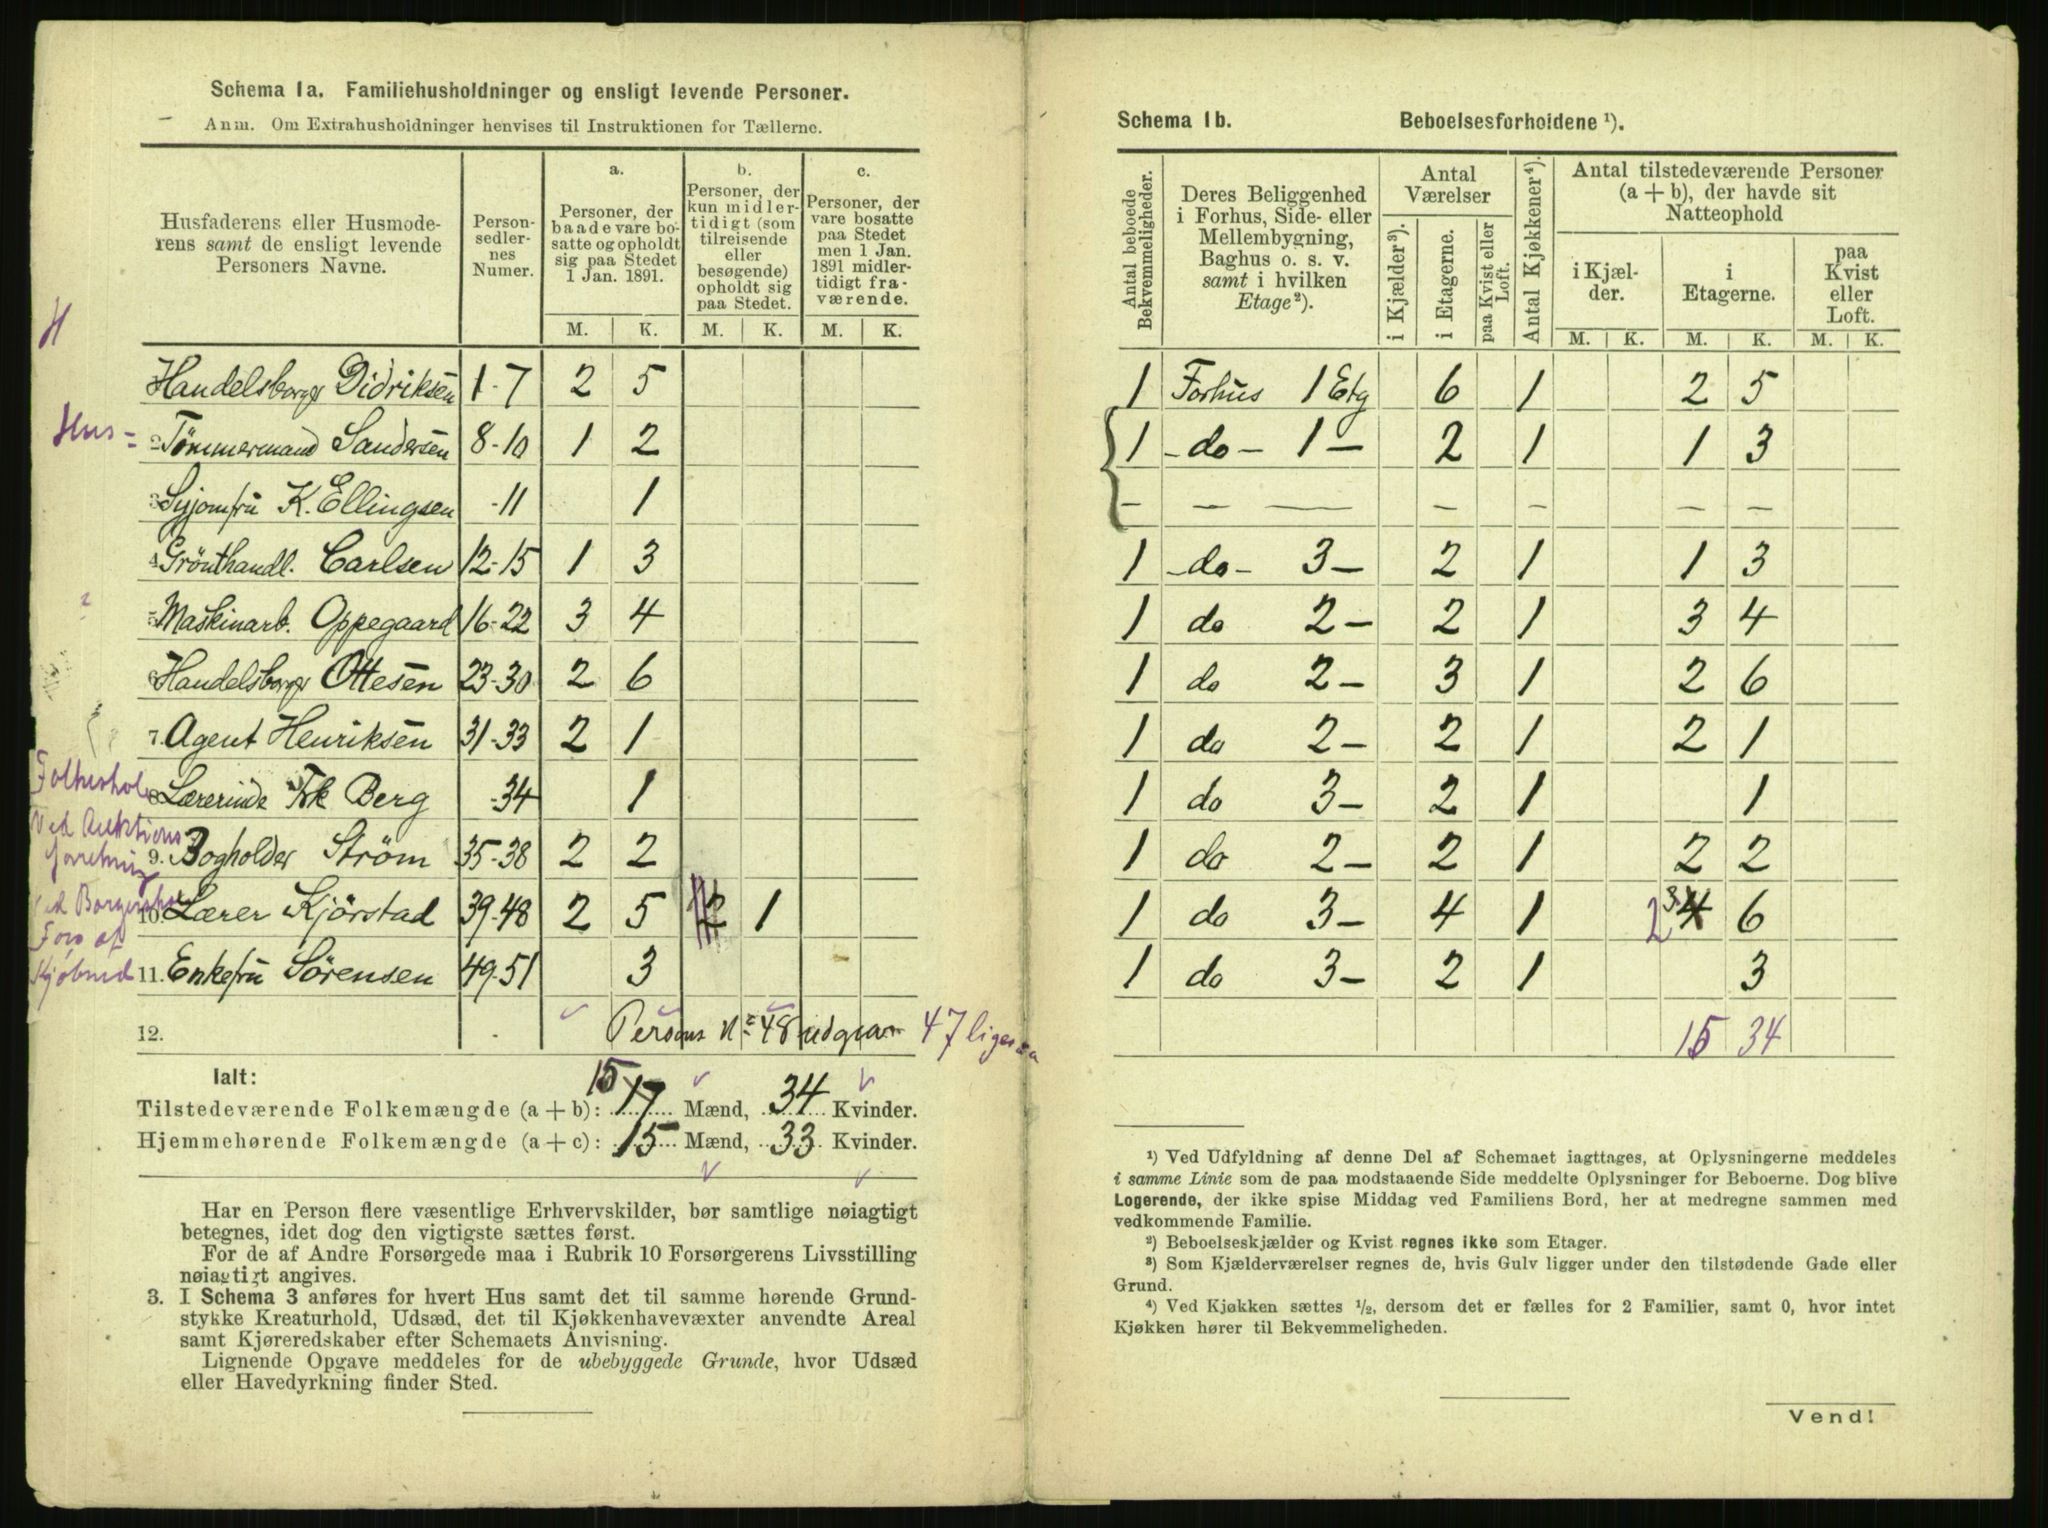 Schema 1a. Familiehusholdninger og ensligt levende Personer.
Anm. Om Extrahusholdninger henvises til Instruktionen for Tællerne.
Husfaderens eller Husmoderens samt de ensligt levende Personers Navne.
Personsedlernes Numer.
a. Personer, der baade vare bosatte og opholdt sig paa Stedet 1 Jan. 1891.
b. Personer, der kun midlertidigt (som tilreisende eller besøgende) opholdt sig paa Stedet.
c. Personer, der vare bosatte paa Stedet men 1 Jan. 1891 midlertidigt fraværende.
M. K. M. K. M. K.
H
Handelsborger Didriksen 1-7 2 5
Hus=
2 Tømmermand Sandersen 8-10 1 2
3 Syjomfru K. Ellingsen -11 1
4 Grønthandl. Carlsen 12-15 1 3
5 Maskinarb. Oppegaard 16-22 3 4
6 Handelsborger Ottesen 23-30 2 6
7. Agent Henriksen 31-33 2 1
Folkeskole
8 Lærerinde Frk Berg -34 1
Ved Auktions
forretning
9. Bogholder Strøm 35-38 2 2
10. Lærer Kjörstad 39-48 2 5 2 1
Fors af
Kjøbmd
11. Enkefru Sörensen 49-51 3
12. Persons No 48 udgaar 47 ligesaa
Ialt:
Tilstedeværende Folkemængde (a + b): 15 17 Mænd, 34 Kvinder.
Hjemmehørende Folkemængde (a + c): 15 Mænd, 33 Kvinder.
Har en Person flere væsentlige Erhvervskilder, bør samtlige nøiagtigt
betegnes, idet dog den vigtigste sættes først.
For de af Andre Forsørgede maa i Rubrik 10 Forsørgerens Livsstilling
nøiagtigt angives.
3. I Schema 3 anføres for hvert Hus samt det til samme hørende Grund-
stykke Kreaturhold, Udsæd, det til Kjøkkenhavevæxter anvendte Areal
samt Kjøreredskaber efter Schemaets Anvisning.
Lignende Opgave meddeles for de ubebyggede Grunde, hvor Udsæd
eller Havedyrkning finder Sted.
Schema 1b. Beboelsesforholdene ¹).
Antal beboede Bekvemmeligheder.
Deres Beliggenhed i Forhus, Side- eller Mellembygning, Baghus o. s. v. samt i hvilken Etage ²).
Antal Værelser
i Kjælder ³).
i Etagerne.
paa Kvist eller Loft.
Antal Kjøkkener ⁴).
Antal tilstedeværende Personer (a + b), der havde sit Natteophold
i Kjælder.
i Etagerne.
paa Kvist eller Loft.
M. K. M. K. M. K.
1 Forhus 1 Etg 6 1 2 5
1 - do - 1 - 2 1 1 3
- - - - - - -
1 - do - 3 - 2 1 1 3
1 do 2 - 2 1 3 4
1 do 2 - 3 1 2 6
1 do 2 - 2 1 2 1
1 do 3 - 2 1 1
1 do 2 - 2 1 2 2
1 do 3 - 4 1 2 3 4 6
1 do 3 - 2 1 3
15 34
¹) Ved Udfyldning af denne Del af Schemaet iagttages, at Oplysningerne meddeles
i samme Linie som de paa modstaaende Side meddelte Oplysninger for Beboerne. Dog blive
Logerende, der ikke spise Middag ved Familiens Bord, her at medregne sammen med
vedkommende Familie.
²) Beboelseskjælder og Kvist regnes ikke som Etager.
³) Som Kjælderværelser regnes de, hvis Gulv ligger under den tilstødende Gade eller
Grund.
⁴) Ved Kjøkken sættes ½, dersom det er fælles for 2 Familier, samt 0, hvor intet
Kjøkken hører til Bekvemmeligheden.
Vend!